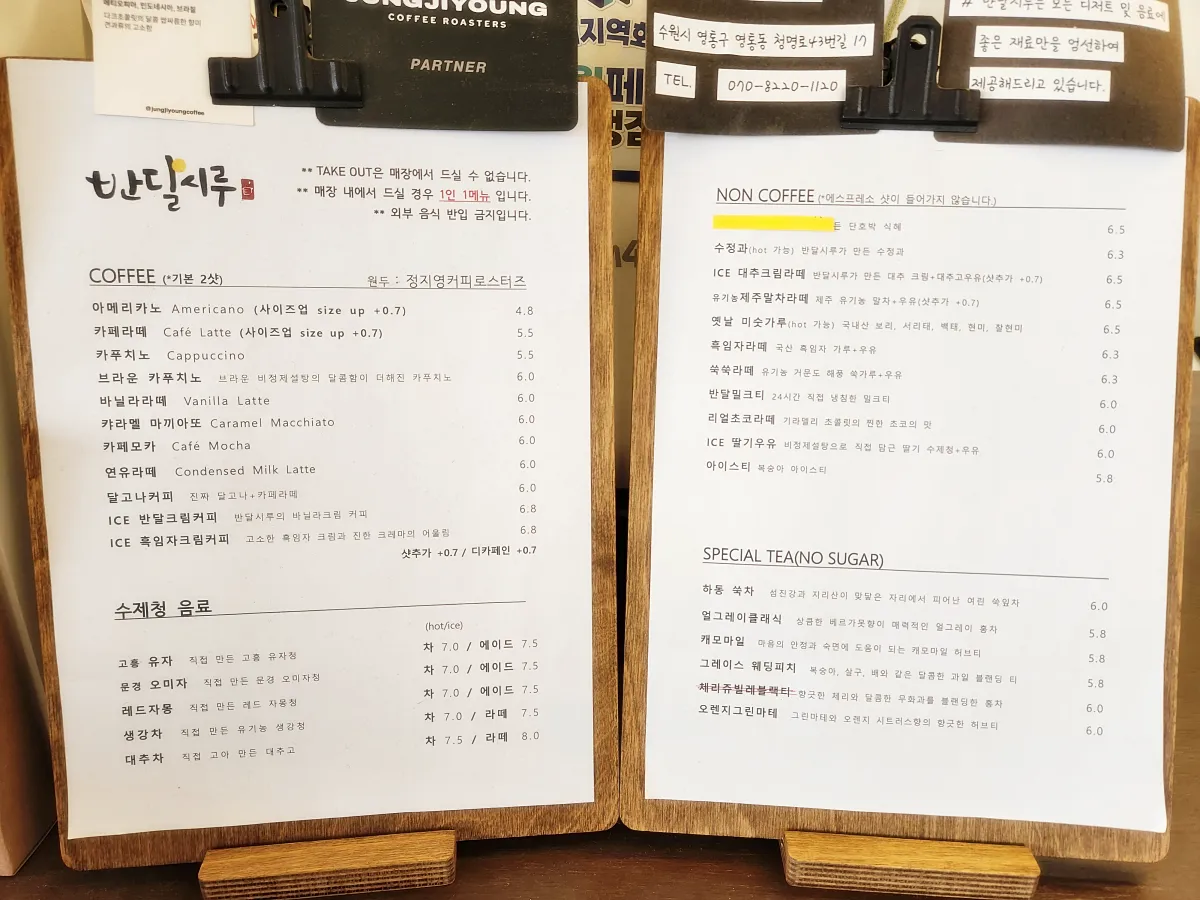 에티오피아, 인도네시아, 브라질
다크초콜릿의 달콤 쌉싸름한 향미
견과류의 고소함
@jungjiyoungcoffee
JUNGJIYOUNG
COFFEE ROASTERS
PARTNER
지역화
페
수원시 영통구 영통동 청명로43번길 17
TEL. 070-8220-1120
# 반달시루는 모든 디저트 및 음료에
좋은 재료만을 엄선하여
제공해드리고 있습니다.
반달시루
** TAKE OUT은 매장에서 드실 수 없습니다.
** 매장 내에서 드실 경우 1인 1메뉴 입니다.
** 외부 음식 반입 금지입니다.
COFFEE (*기본 2샷) 원두 : 정지영커피로스터즈
아메리카노 Americano (사이즈업 size up +0.7) 4.8
카페라떼 Café Latte (사이즈업 size up +0.7) 5.5
카푸치노 Cappuccino 5.5
브라운 카푸치노 브라운 비정제설탕의 달콤함이 더해진 카푸치노 6.0
바닐라라떼 Vanilla Latte 6.0
카라멜 마끼아또 Caramel Macchiato 6.0
카페모카 Café Mocha 6.0
연유라떼 Condensed Milk Latte 6.0
달고나커피 진짜 달고나+카페라떼 6.0
ICE 반달크림커피 반달시루의 바닐라크림 커피 6.8
ICE 흑임자크림커피 고소한 흑임자 크림과 진한 크레마의 어울림 6.8
샷추가 +0.7 / 디카페인 +0.7
수제청 음료
(hot/ice)
고흥 유자 직접 만든 고흥 유자청 차 7.0 / 에이드 7.5
문경 오미자 직접 만든 문경 오미자청 차 7.0 / 에이드 7.5
레드자몽 직접 만든 레드 자몽청 차 7.0 / 에이드 7.5
생강차 직접 만든 유기농 생강청 차 7.0 / 라떼 7.5
대추차 직접 고아 만든 대추고 차 7.5 / 라떼 8.0
NON COFFEE (*에스프레소 샷이 들어가지 않습니다.)
든 단호박 식혜 6.5
수정과(hot 가능) 반달시루가 만든 수정과 6.3
ICE 대추크림라떼 반달시루가 만든 대추 크림+대추고우유(샷추가 +0.7) 6.5
유기농제주말차라떼 제주 유기농 말차+우유(샷추가 +0.7) 6.5
옛날 미숫가루(hot 가능) 국내산 보리, 서리태, 백태, 현미, 찰현미 6.5
흑임자라떼 국산 흑임자 가루+우유 6.3
쑥쑥라떼 유기농 거문도 해풍 쑥가루+우유 6.3
반달밀크티 24시간 직접 냉침한 밀크티 6.0
리얼초코라떼 기라델리 초콜릿의 찐한 초코의 맛 6.0
ICE 딸기우유 비정제설탕으로 직접 담근 딸기 수제청+우유 6.0
아이스티 복숭아 아이스티 5.8
SPECIAL TEA(NO SUGAR)
하동 쑥차 섬진강과 지리산이 맞닿은 자리에서 피어난 여린 쑥잎차 6.0
얼그레이클래식 상큼한 베르가못향이 매력적인 얼그레이 홍차 5.8
캐모마일 마음의 안정과 숙면에 도움이 되는 캐모마일 허브티 5.8
그레이스 웨딩피치 복숭아, 살구, 배와 같은 달콤한 과일 블랜딩 티 5.8
체리쥬빌레블랙티 향긋한 체리와 달콤한 무화과를 블랜딩한 홍차 6.0
오렌지그린마테 그린마테와 오렌지 시트러스향의 향긋한 허브티 6.0